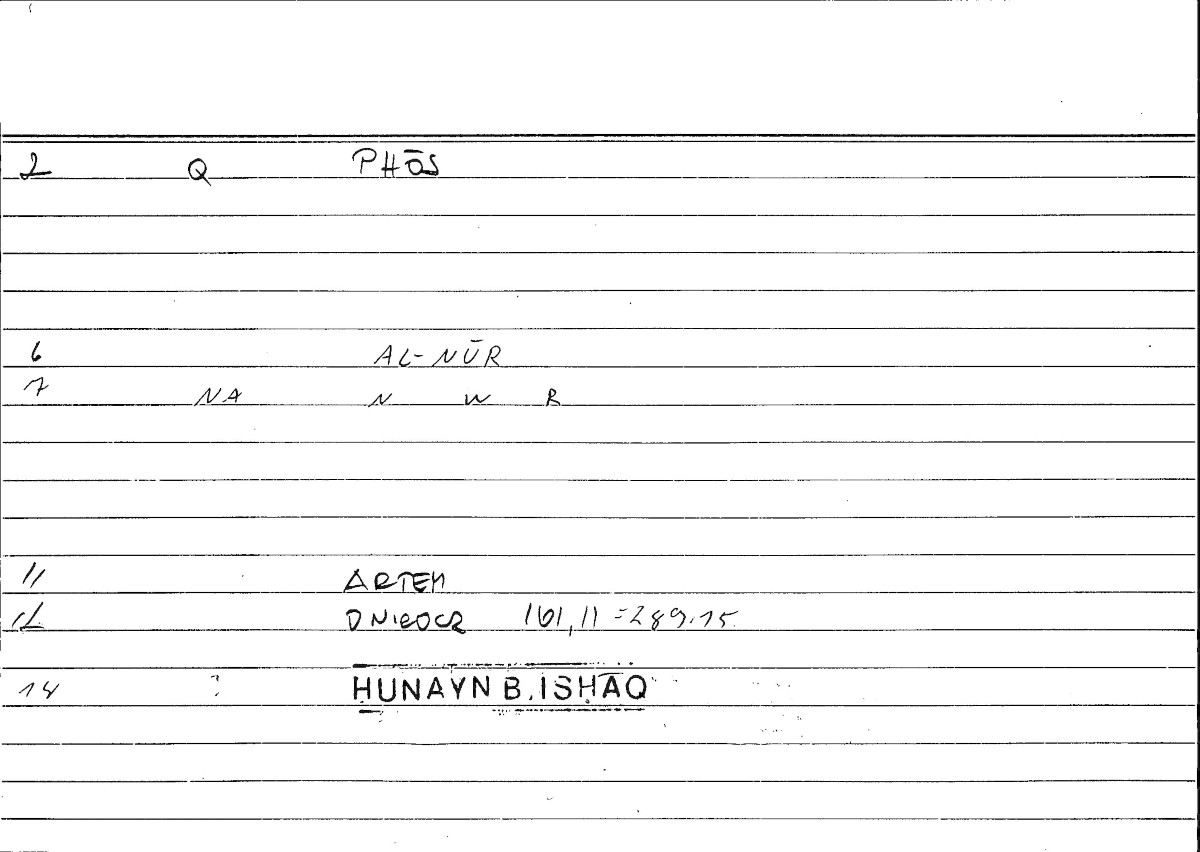 2 Q PHŌS
6 AL-NŪR
7 NA N W R
11 ARTEM
12 ONIROCR 161,11 = 289.15
14 ḤUNAYN B. ISḤĀQ